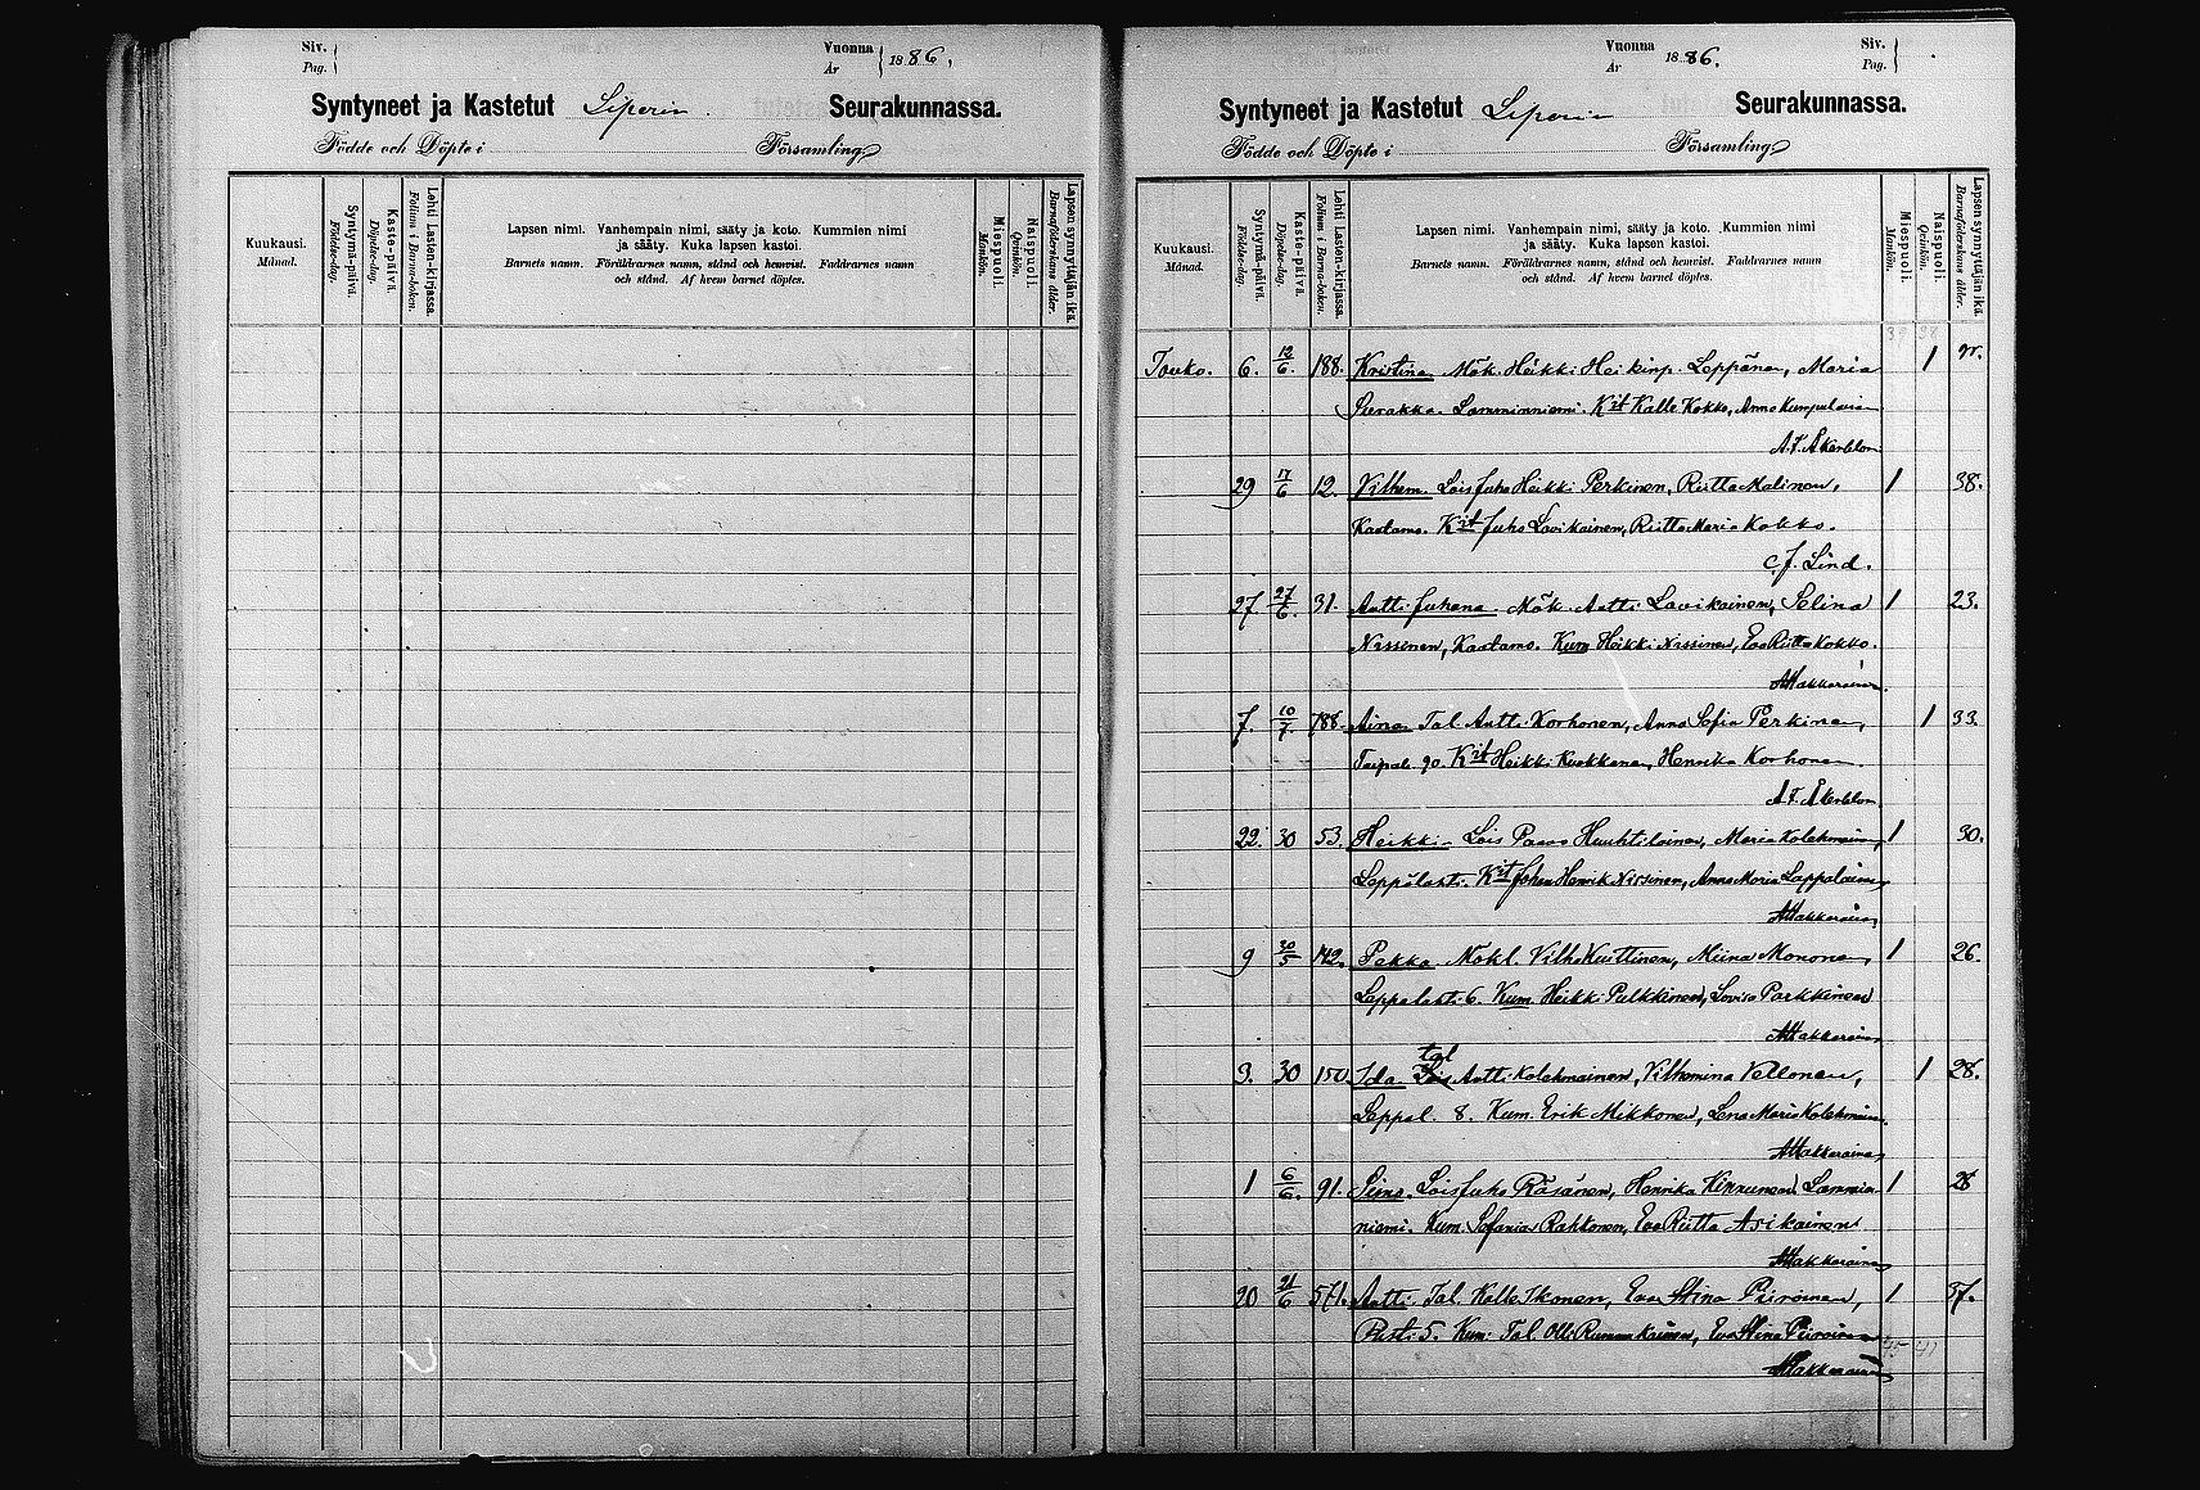 Siv.
Pag.
Vuonna
År
1886.
Syntyneet ja Kastetut Liperin Seurakunnassa.
Födde och Döpte i Församling
Kuukausi.
Månad.
Syntymä-päivä.
Födelse-dag.
Kaste-päivä.
Döpelse-dag.
Lehti Lasten-kirjassa.
Folium i Barna-boken.
Lapsen nimi. Vanhempain nimi, sääty ja koto. Kummien nimi
ja sääty. Kuka lapsen kastoi.
Barnets namn. Föräldrarnes namn, stånd och hemvist. Faddrarnes namn
och stånd. Af hvem barnet döptes.
Miespuoli.
Mankön.
Naispuoli.
Qvinkön.
Lapsen synnyttäjän ikä.
Barnaföderskans ålder.
Vuonna
År
1886.
Siv.
Pag.
Syntyneet ja Kastetut Liperin Seurakunnassa.
Födde och Döpte i Församling
Kuukausi.
Månad.
Syntymä-päivä.
Födelse-dag.
Kaste-päivä.
Döpelse-dag.
Lehti Lasten-kirjassa.
Folium i Barna-boken.
Lapsen nimi. Vanhempain nimi, sääty ja koto. Kummien nimi
ja sääty. Kuka lapsen kastoi.
Barnets namn. Föräldrarnes namn, stånd och hemvist. Faddrarnes namn
och stånd. Af hvem barnet döptes.
Miespuoli.
Mankön.
Naispuoli.
Qvinkön.
Lapsen synnyttäjän ikä.
Barnaföderskans ålder.
Touko. 6. 12/6. 188. Kristina Mök. Heikki Heikinp. Leppänen, Maria 1
Lamminniemi. Kit Kalle Kokko, Anna Kumpulain
A. F. Åkerblom.
29 17/6 12. Vilhem. Lois Juho Heikki Perkinen, Riitta Malinen, 1 38.
Kaatamo. Kit Juho Lavikainen, Riitta Maria Kokko.
C. J. Lind.
27. 27/6. 31. Antti Juhana. Mök. Antti Lavikainen, Selina 1 23.
Nissinen, Kaatamo. Kum Heikki Nissinen, Eva Riitta Kokko.
AMakkarainen.
7. 10/7. 788. Aina Tal. Antti Korhonen, Anna Sofia Perkinen, 1 33.
Taipale 90. Kit Heikki Kuokkanen, Henrika Korhonen.
A. F. Åkerblom
22. 30 53. Heikki Lois Paavo Huuhtilainen, Maria Kolehmainen, 1 30.
Leppälahti. Kit Johan Henrik Nissinen, Anna Maria Lappalainen
AMakkarainen
9 30/5 142. Pekka Mökl. Vilho Kuittinen, Miina Mononen, 1 26.
Leppalahti 6. Kum. Heikki Pulkkinen, Lovisa Parkkinen
AMakkarainen
3. 30 150. Ida tal Antti Kolehmainen, Vilhemina Vellonen, 1 28.
Leppäl. 8. Kum. Erik Mikkonen, Lena Maria Kolehmain.
AMakkarainen
1 6/6. 91. Simo. Lois Juho Räsänen, Henrika Kinnunen Lammin- 1 28
niemi. Kum. Sefanias Rahkonen, Eva Riitta Asikainen
AMakkarainen
20 21/6 571. Antti. Tal. Kalle Ikonen, Eva Stina Piiroinen, 1 37.
5. Kum. Tal. Olli Rummukainen, Eva Stina Piiroinen
AMakkarainen